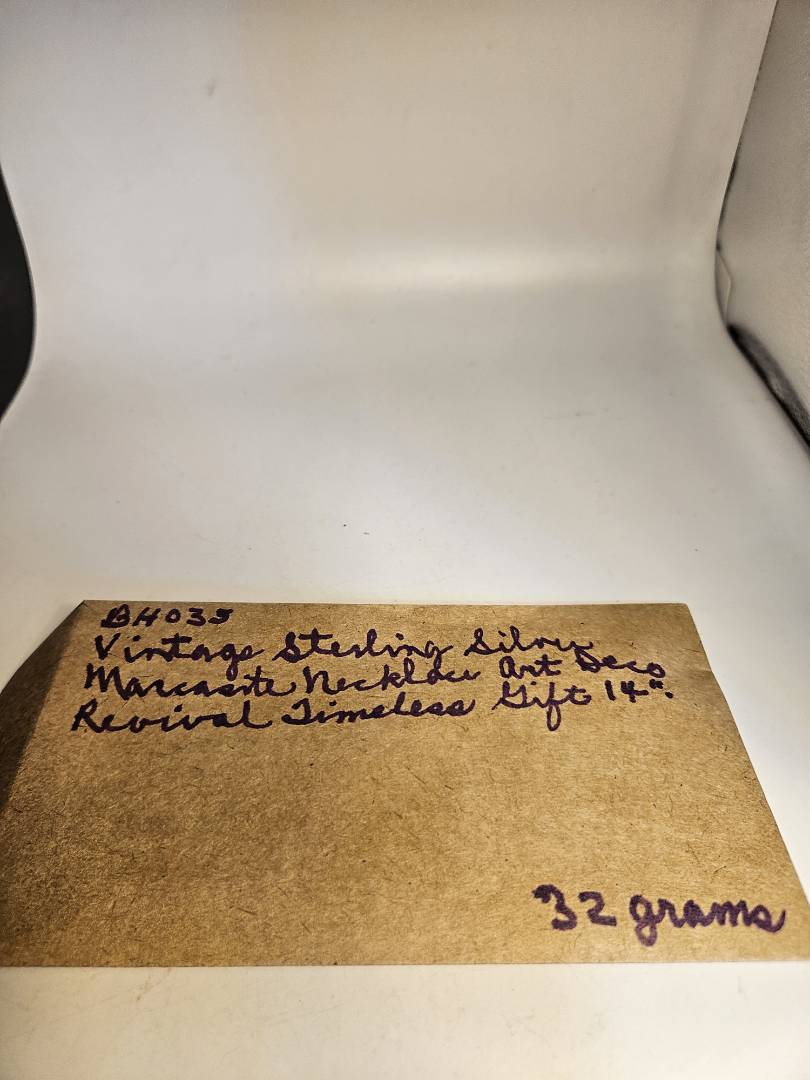 BH035
Vintage Sterling Silver
Marcasite Necklace Art Deco
Revival Timeless Gift 14".
32 grams